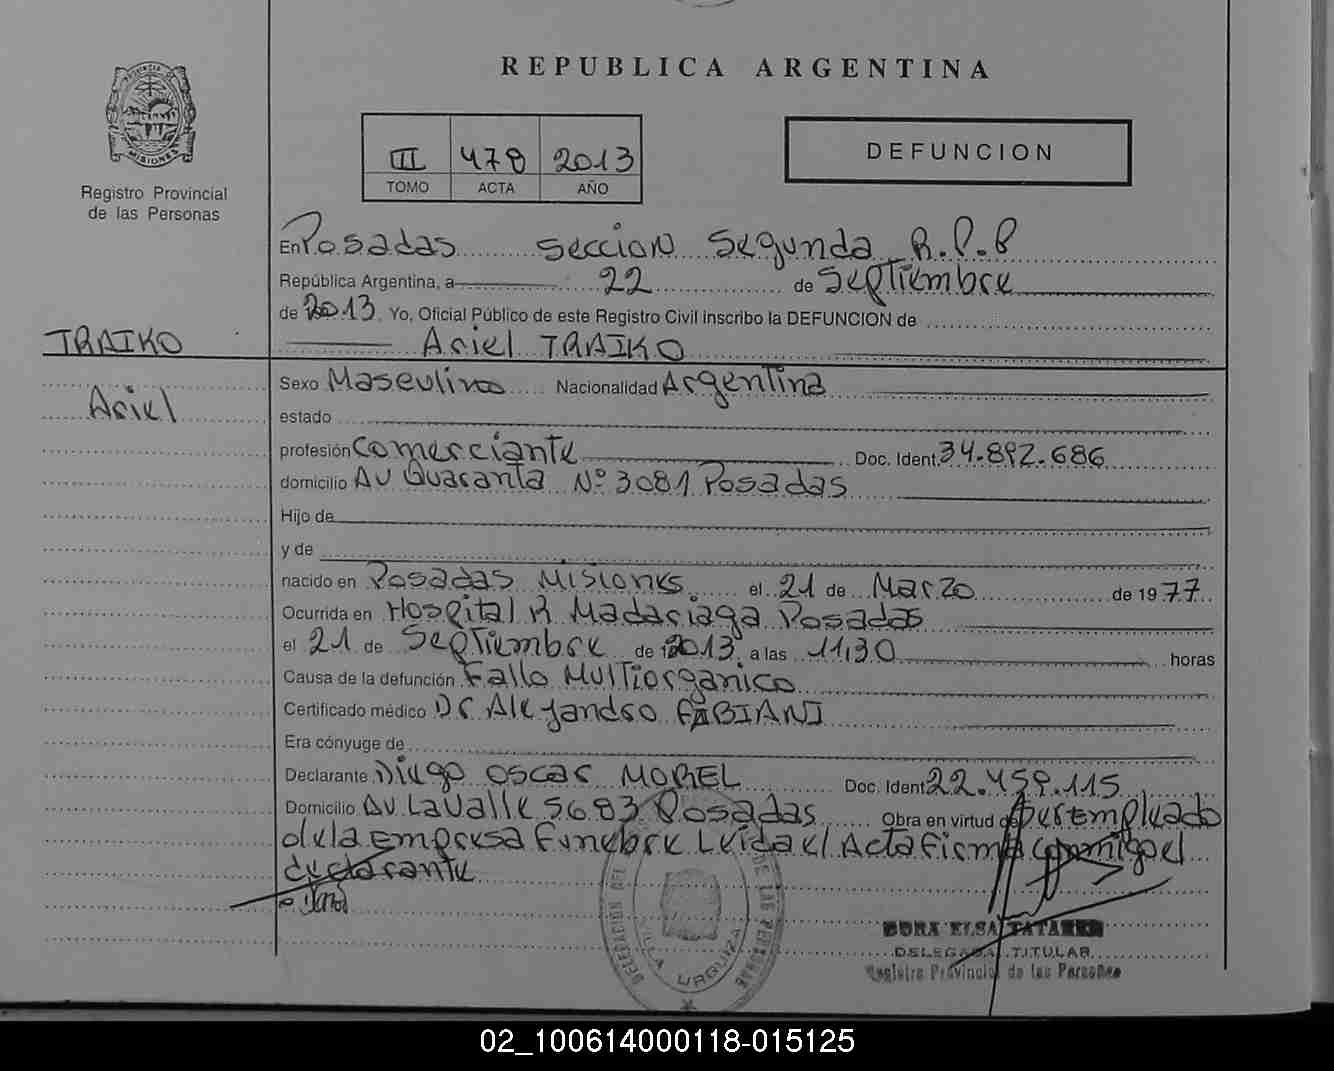 REPUBLICA ARGENTINA
PROVINCIA DE
MISIONES
Registro Provincial
de las Personas
III 478 2013
TOMO ACTA AÑO
DEFUNCION
En Posadas seccion Segunda R.P.P
República Argentina, a 22 de Septiembre
de 2013 Yo, Oficial Público de este Registro Civil inscribo la DEFUNCION de
TRAIKO
Ariel TRAIKO
Ariel
Sexo Masculino Nacionalidad Argentina
estado
profesión comerciante Doc. Ident. 34.892.686
domicilio AV Quaranta Nº 3081 Posadas
Hijo de
y de
nacido en Posadas Misiones. el 21 de Marzo de 1977
Ocurrida en Hospital R Madariaga Posadas
el 21 de Septiembre de 2013 a las 11,30 horas
Causa de la defunción Fallo Multiorganico
Certificado médico Dr Alejandro FABIANI
Era cónyuge de
Declarante Diego Oscar MOREL Doc. Ident 22.459.115
Domicilio AV Lavalle 5683 Posadas Obra en virtud de ser Empleado
de la Empresa Funebre Leida el Acta Firma conmigo el
declarante
DELEGACIÓN DEL DE LAS PERSONAS
VILLA URQUIZA
DORA ELSA
DELEGADA TITULAR
Registro Provincial de las Personas
02_100614000118-015125